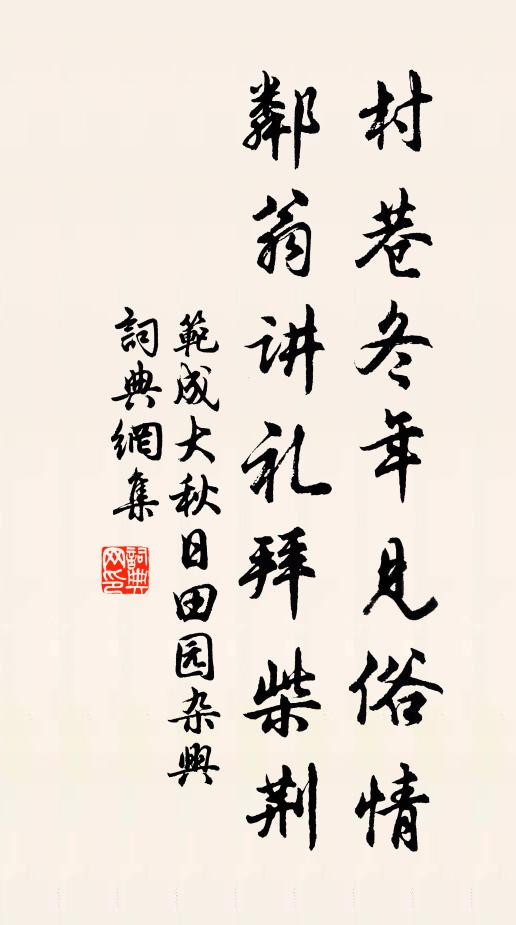 村巷冬年见俗情
鄰翁讲礼拜柴荆
範成大秋日田园杂興
詞典網集
詞典网印